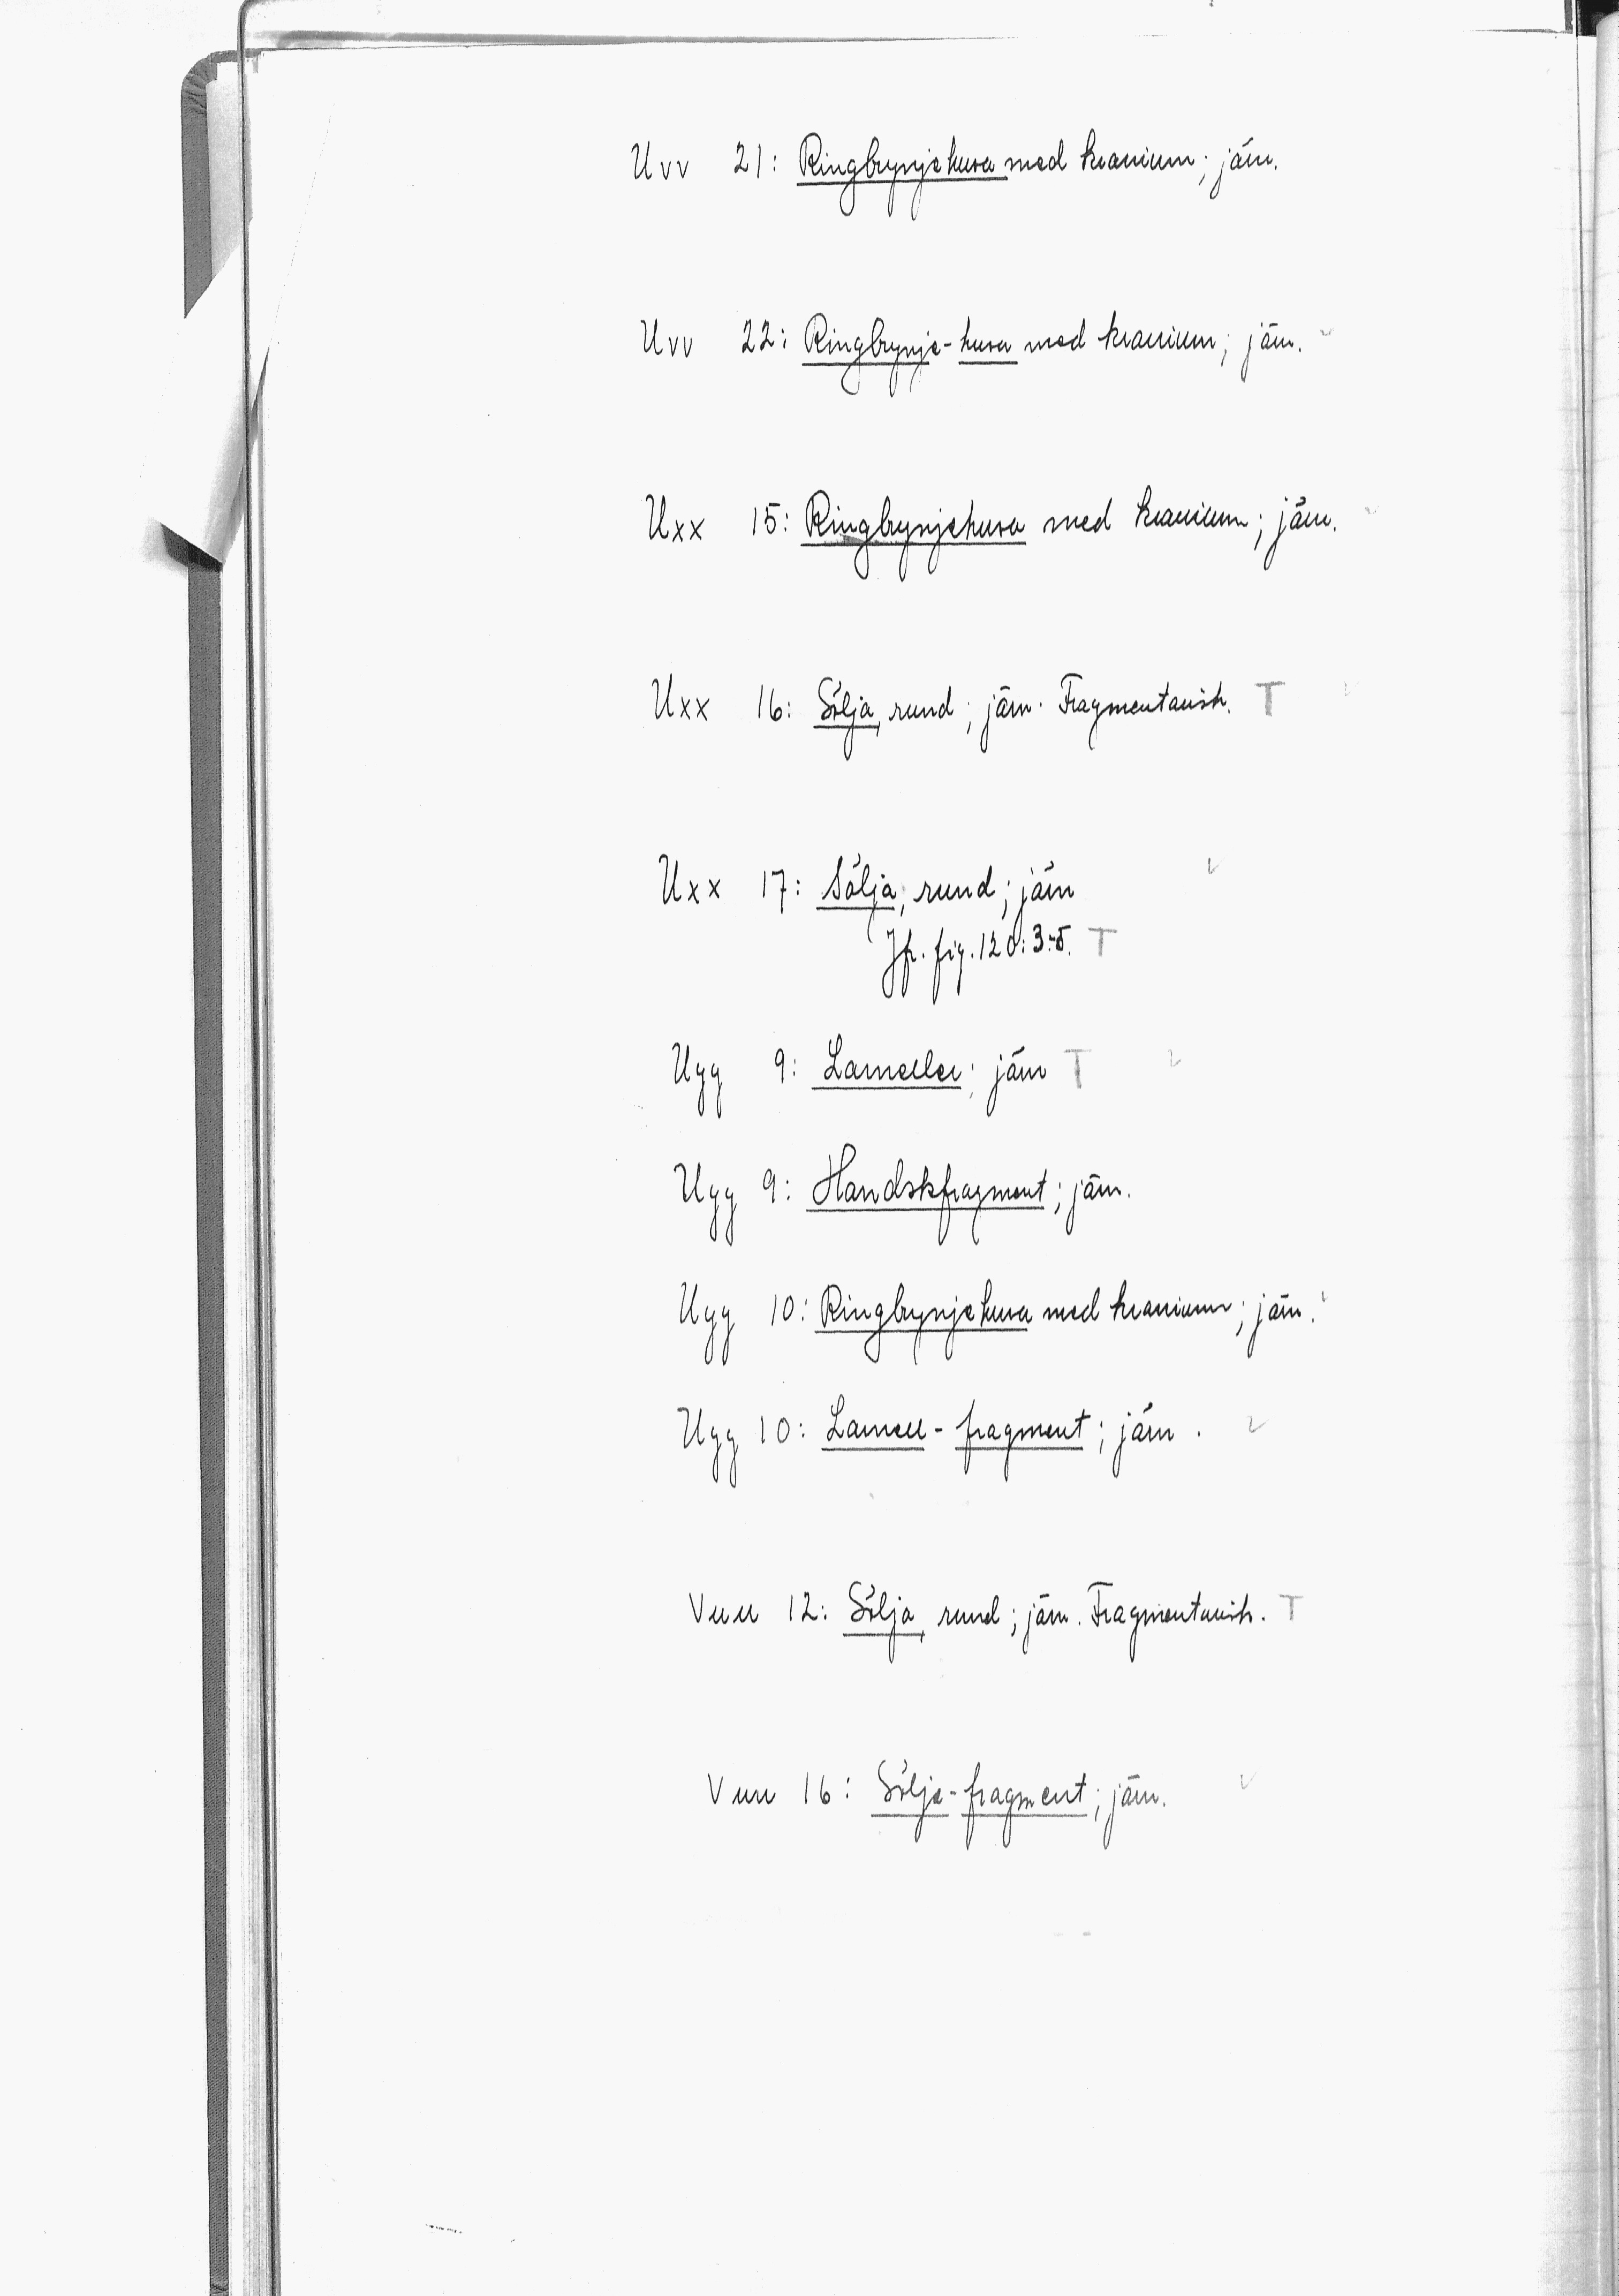 Uvv 21: Ringbrynjehuva med kranium; järn.
Uvv 22: Ringbrynje-huva med kranium; järn.
Uxx 15: Ringbrynjehuva med kranium; järn.
Uxx 16: Sölja, rund; järn. Fragmentarisk. T
Uxx 17: Sölja, rund; järn
Jfr. fig. 120:3-5. T
Uyy 9: Lameller; järn T
Uyy 9: Handskfragment; järn.
Uyy 10: Ringbrynjehuva med kranium; järn.
Uyy 10: Lamell-fragment; järn.
Vuu 12: Sölja, rund; järn. Fragmentarisk. T
Vuu 16: Sölje-fragment; järn.